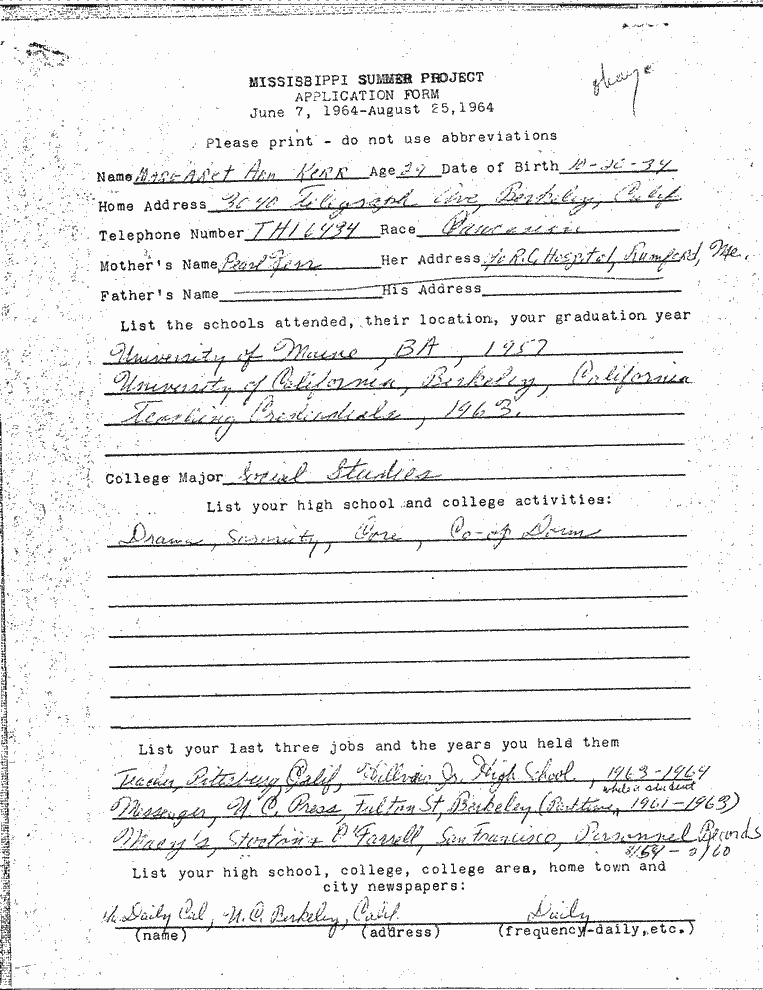 okay
MISSISSIPPI SUMMER PROJECT
APPLICATION FORM
June 7, 1964-August 25,1964
Please print - do not use abbreviations
Name Margaret Ann Kerr Age 29 Date of Birth 10-26-34
Home Address 3040 Telegraph Ave, Berkeley, Calif
Telephone Number TH16434 Race Caucasian
Mother's Name Pearl Kerr Her Address R.C. Hospital, Rumford, Me.
Father's Name His Address
List the schools attended, their location, your graduation year
University of Maine, BA, 1957
University of California, Berkeley, California
Teaching Credentials, 1963.
College Major Social Studies
List your high school and college activities:
Drama, Sorority, Core, Co-op Dorms
List your last three jobs and the years you held them
Teacher, Pittsburg, Calif, Jr. High School, 1963-1964
while a student
Messenger, U.C. Press, Fulton St, Berkeley (Part time, 1961-1963)
Macy's, Stockton & O'Farrell, San Francisco, Personnel Records
List your high school, college, college area, home town and
city newspapers:
the Daily Cal, U.C. Berkeley, Calif. Daily
(name) (address) (frequency-daily,etc.)